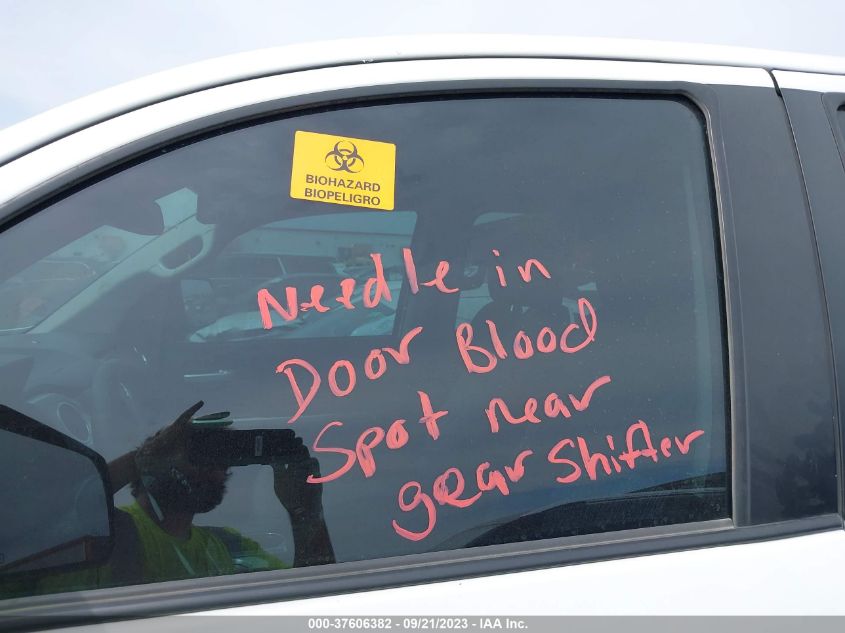 BIOHAZARD
BIOPELIGRO
Needle in
Door Blood
Spot near
gear Shifter
000-37606382 - 09/21/2023 - IAA Inc.